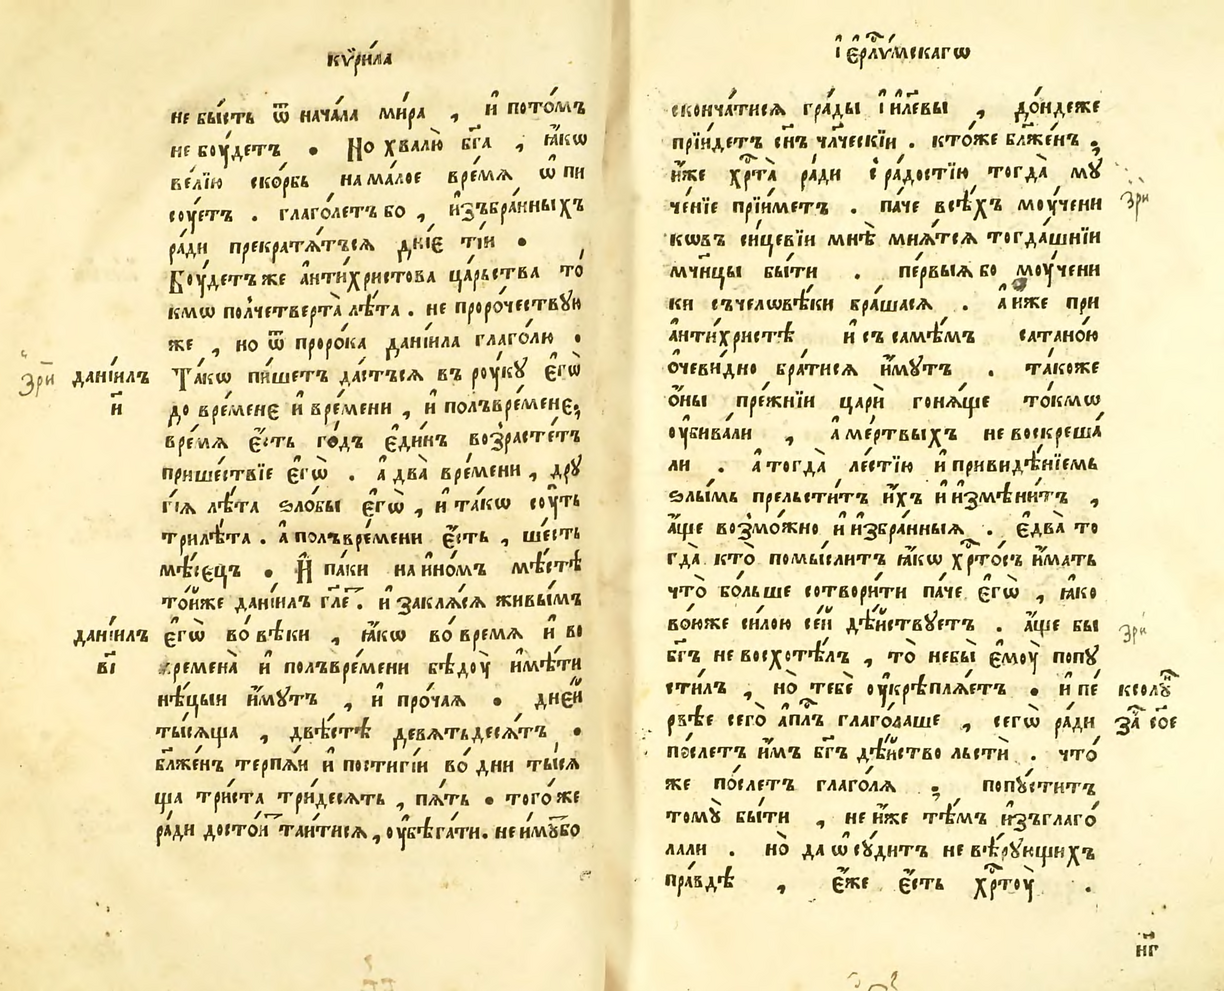 кѷри́ла
не бы́сть ѿ нача́ла ми́ра , и҆ пото́мъ
не боу́детъ . Но хвалю̀ бг҃а , ꙗ҆́кѡ
ве́лїю ско́рбь на ма́лое вре́мѧ ѡ҆ пи
соу́етъ . глаго́летъ бо , и҆зъбра́нныхъ
ра́ди прекратѧ́тъсѧ дні́е ті́и .
Боу́детъ же а҆нти́христова ца́рьства то́
кмѡ по́лчетверта̀ лѣ́та . не проро́чествꙋю
же , но ѿ проро́ка дані́ила глаго́лю .
Та́кѡ пи́шетъ да́стъсѧ въ рꙋ́кꙋ є҆гѡ̀
до вре́мене и҆ вре́мени , и҆ полъвре́мене,
вре́мѧ є҆́сть го́дъ є҆ди́нъ возрасте́тъ
прише́ствїе є҆гѡ̀ . а҆ два̀ вре́мени , дрꙋ
гі́ѧ лѣ́та ѕло́бы є҆гѡ̀ , и҆ та́кѡ сꙋ́ть
три лѣ́та . а҆ полъвре́мени є҆́сть , ше́сть
мѣ́сѧцъ . И҆ па́ки на и҆но́мъ мѣ́стѣ
то́йже дані́илъ гл҃е . и҆ заклѧ́сѧ живы́мъ
є҆гѡ̀ во́ вѣки , ꙗ҆́кѡ во́ времѧ и҆ во
времена̀ и҆ полъвре́мени бѣдоу̀ и҆мѣ́ти
нѣ́цыи и҆́мꙋтъ , и҆ про́чаѧ . дне́й
ты́сѧща , двѣ́стѣ девѧтьдесѧ́тъ .
бл҃же́нъ терпѧ́и и҆ пости́гїи во́ дни ты́сѧ
ща три́ста три́десѧть , пѧ́ть . того́ же
ра́ди досто́и таи́тисѧ , оу҆бѣга́ти . не и҆́мꙋбо
дані́илъ
и҃
дані́илъ
в҃і
Зри
і҆ єрⷭ҇ли́мскагѡ
сконча́тисѧ гра́ды і҆и҃левы , до́ндеже
прїи́детъ сн҃ъ чл҃ческїи . кто́же бл҃же́нъ ,
и҆́же хрⷭ҇та̀ ра́ди с ра́достїю тогда̀ мꙋ
че́нїе прїи́метъ . па́че всѣ́хъ моу́чени
кѡвъ си́цевїи мнѣ̀ мнѧ́тсѧ тогда́шнїи
мч҃ницы бы́ти . пе́рвыѧ бо моу́чени
ки съ человѣ́ки бра́шасѧ . а҆ и҆же при
а҆нти́христѣ и҆ съ самѣ́мъ сатано́ю
о҆че́видно бра́тисѧ и҆́мꙋтъ . та́коже
о҆́ны пре́жнїи царѝ гонѧ́ще то́кмѡ
оу҆бива́ли , а҆ ме́ртвыхъ не воскреша́
ли . а҆ тогда̀ ле́стїю и҆ привидѣ́нїемъ
ѕлы́мъ прельсти́тъ и҆́хъ и҆ и҆змѣни́тъ ,
а҆́ще возмо́жно и҆ и҆збра́нныѧ . є҆два̀ то
гда̀ кто̀ помы́слитъ ꙗ҆́кѡ хрⷭ҇то́съ и҆́мать
что̀ бо́льше сотвори́ти па́че є҆гѡ̀ , ꙗ҆́ко
во́иже си́лою се́й дѣ́йствꙋетъ . а҆́ще бы
бг҃ъ не восхотѣ́лъ , то̀ не бы̀ є҆моу̀ попꙋ
сти́лъ , но̀ тебѐ оу҆крѣплѧ́етъ . и҆ пе́
рвѣе сего̀ а҆пⷭ҇лъ глаго́лаше , сегѡ̀ ра́ди
по́слетъ и҆́мъ бг҃ъ дѣ́йство льстѝ . что́
же по́слетъ глаго́лѧ , попꙋ́ститъ
томꙋ̀ бы́ти , не и҆́же тѣ́мъ и҆зъглаго́
лали . но̀ да ѡ҆сꙋ́дитъ не вѣ́рꙋющихъ
пра́вдѣ , є҆́же є҆́сть хрⷭ҇тоу̀ .
Зри
Зри
к солꙋⷩ҇
за҃ со҃е
н҃г